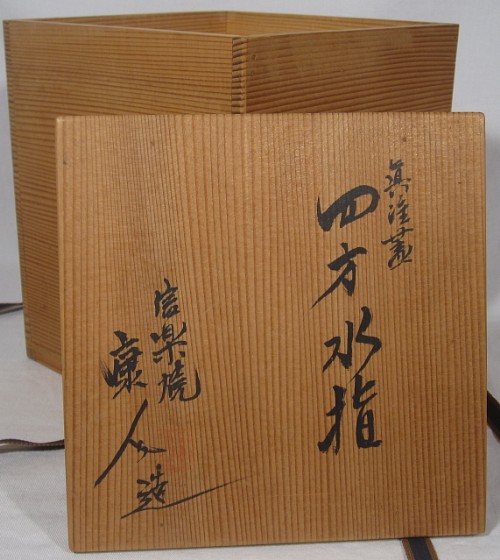 眞塗蓋
四方水指
信楽焼
康人造